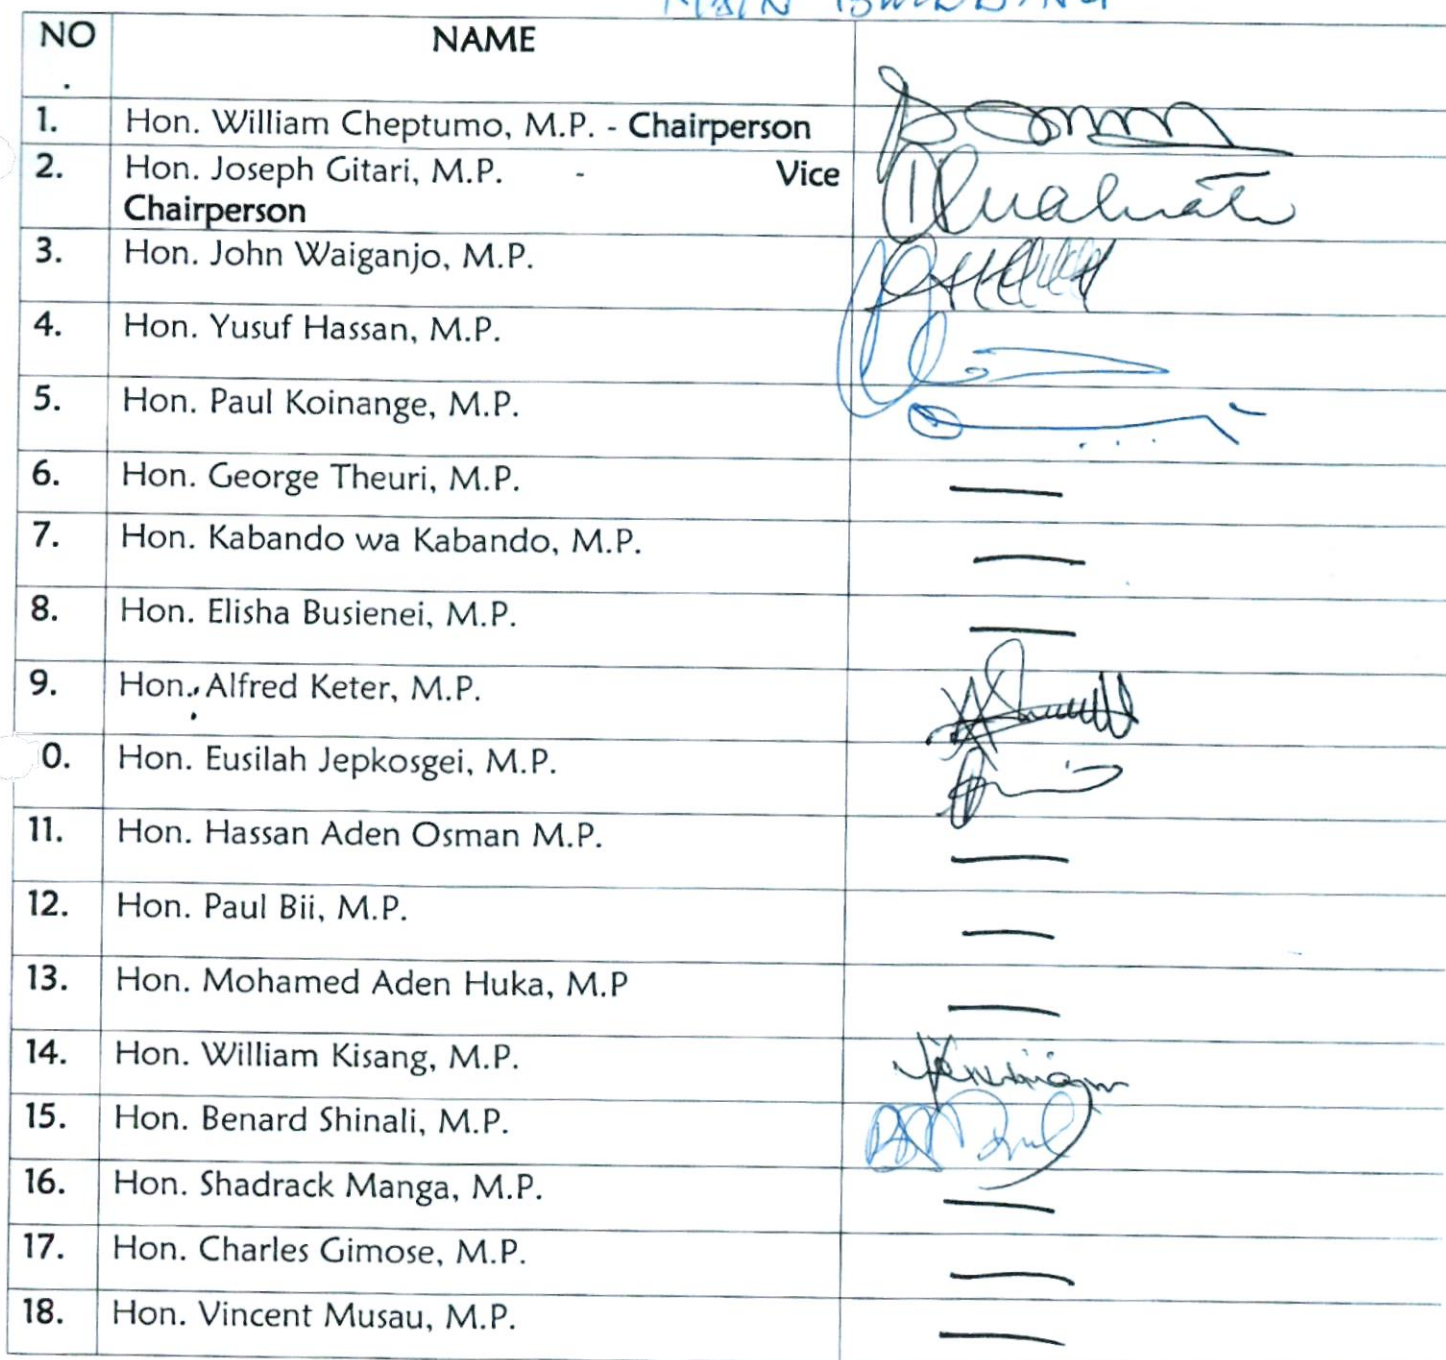 MAIN BUILDING
NO NAME
.
1. Hon. William Cheptumo, M.P. - Chairperson
2. Hon. Joseph Gitari, M.P. - Vice
Chairperson
3. Hon. John Waiganjo, M.P.
4. Hon. Yusuf Hassan, M.P.
5. Hon. Paul Koinange, M.P.
6. Hon. George Theuri, M.P.
7. Hon. Kabando wa Kabando, M.P.
8. Hon. Elisha Busienei, M.P.
9. Hon. Alfred Keter, M.P.
0. Hon. Eusilah Jepkosgei, M.P.
11. Hon. Hassan Aden Osman M.P.
12. Hon. Paul Bii, M.P.
13. Hon. Mohamed Aden Huka, M.P
14. Hon. William Kisang, M.P.
15. Hon. Benard Shinali, M.P.
16. Hon. Shadrack Manga, M.P.
17. Hon. Charles Gimose, M.P.
18. Hon. Vincent Musau, M.P.